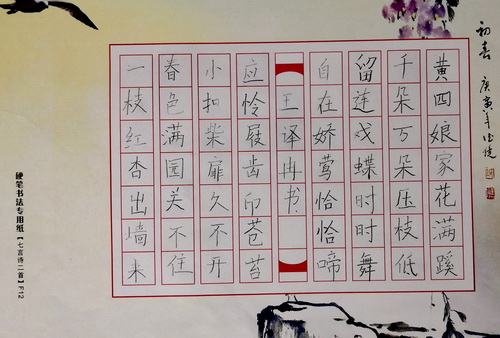 初春 庚寅年
黄四娘家花满蹊
千朵万朵压枝低
留连戏蝶时时舞
自在娇莺恰恰啼
王译冉书
应怜屐齿印苍苔
小扣柴扉久不开
春色满园关不住
一枝红杏出墙来
硬笔书法专用纸【七言诗二首】F12